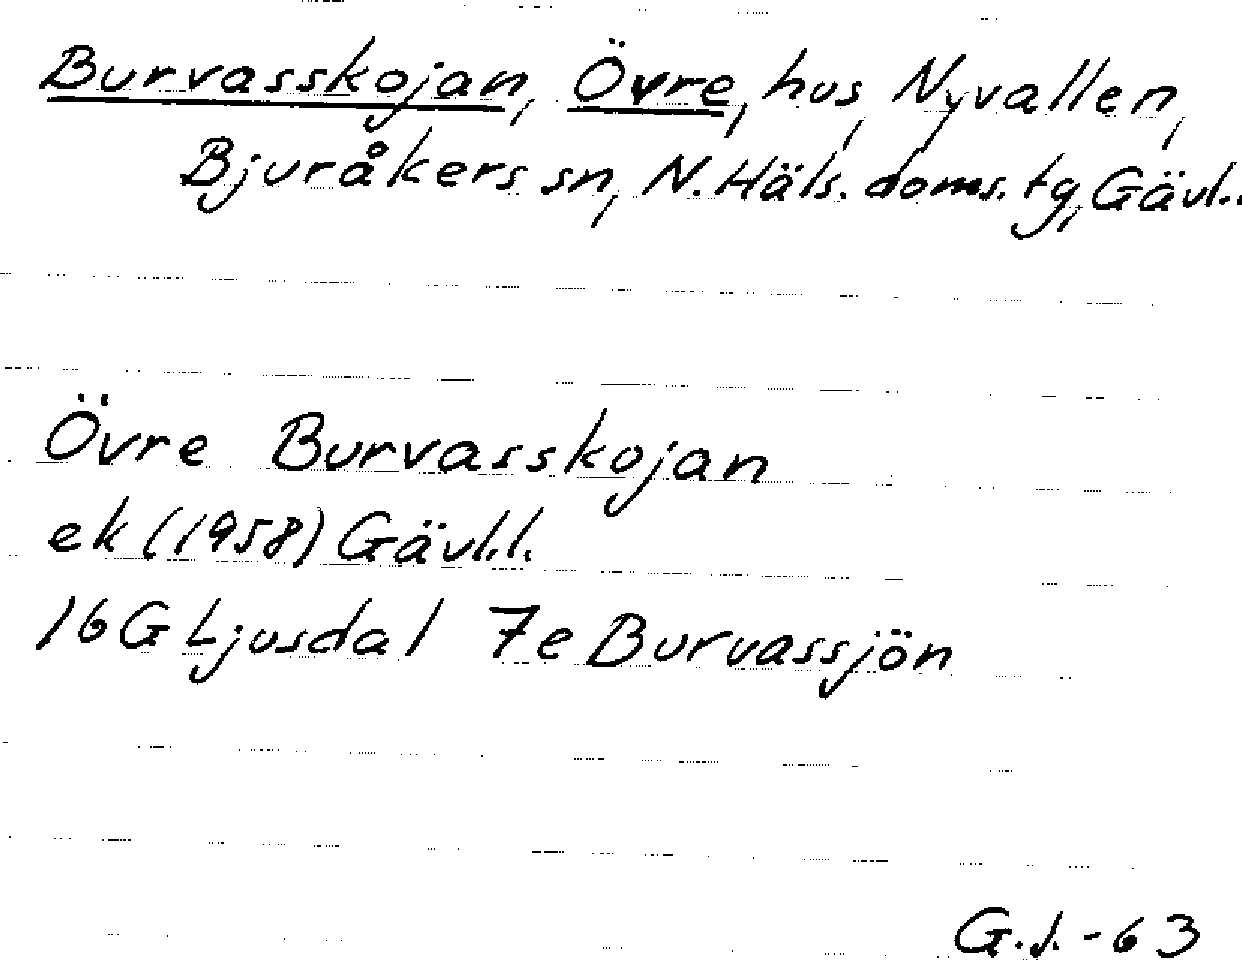 Burvasskojan, Övre, hus, Nyvallen,
Bjuråkers sn, N. Häls. doms. tg, Gävl..
Övre Burvasskojan
ek (1958) Gävl.l.
16G Ljusdal 7e Burvassjön
G.J. - 63